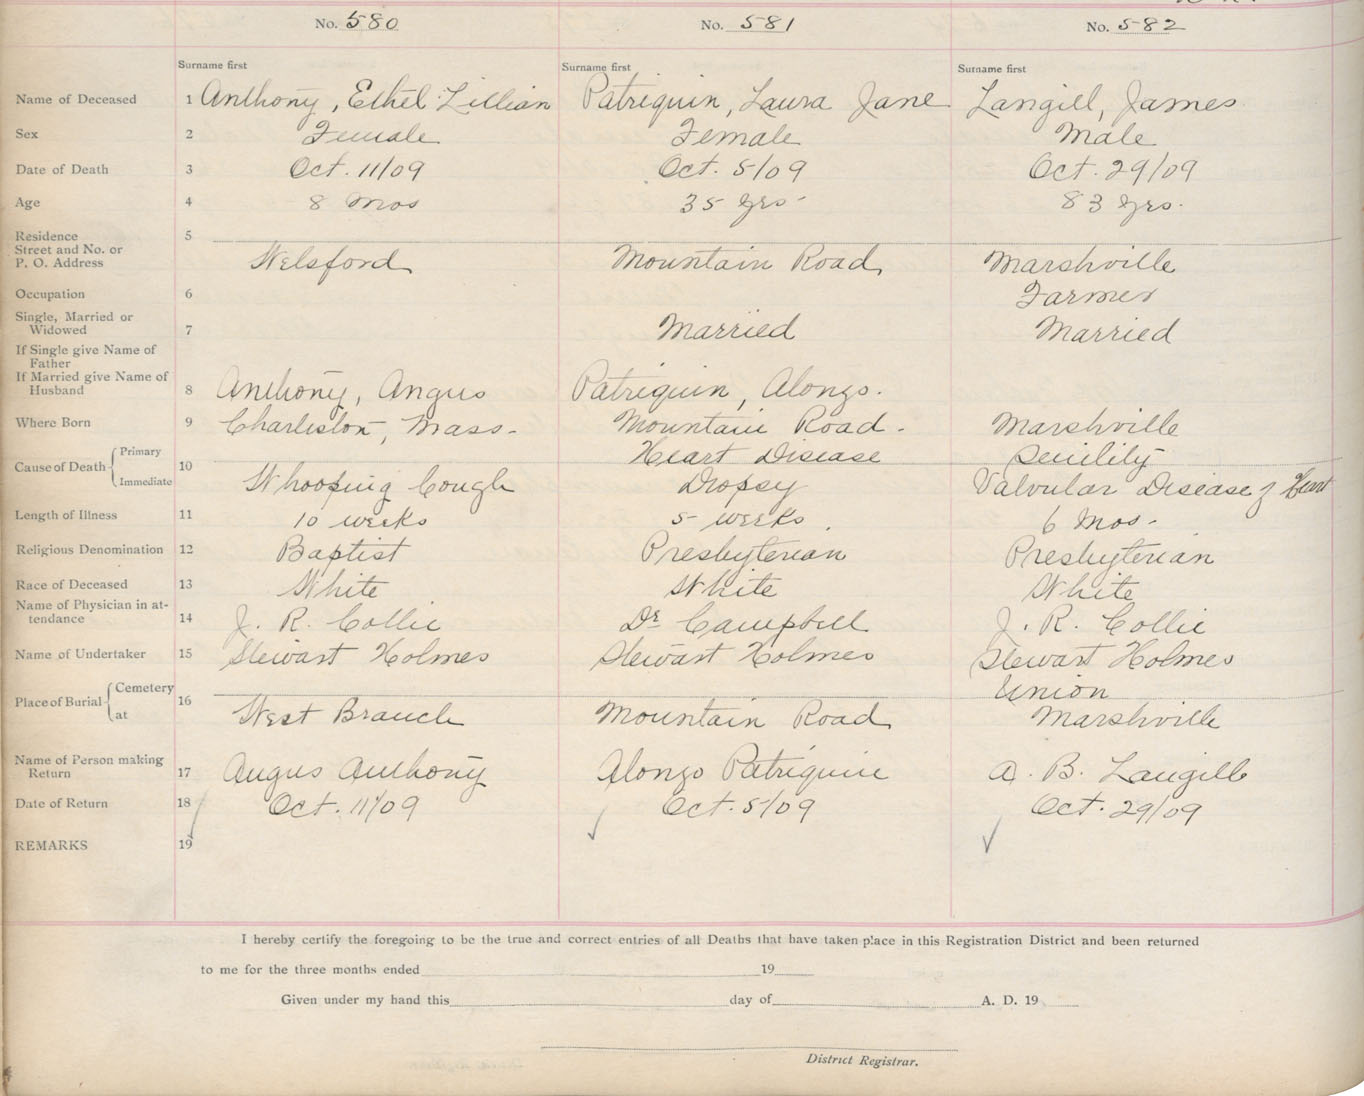 No. 580 No. 581 No. 582
Surname first Surname first Surname first
Name of Deceased 1 Anthony, Ethel Lillian Patriquin, Laura Jane Langill, James
Sex 2 Female Female Male
Date of Death 3 Oct. 11/09 Oct. 5/09 Oct. 29/09
Age 4 8 Mos 35 Yrs. 83 Yrs.
Residence 5
Street and No. or
P. O. Address Welsford Mountain Road Marshville
Occupation 6 Farmer
Single, Married or
Widowed 7 Married Married
If Single give Name of
Father
If Married give Name of
Husband 8 Anthony, Angus Patriquin, Alonzo.
Where Born 9 Charleston, Mass. Mountain Road. Marshville
Cause of Death Primary 10 Heart Disease Senility
Immediate Whooping Cough Dropsy Valvular Disease of Heart
Length of Illness 11 10 weeks 5 weeks. 6 Mos.
Religious Denomination 12 Baptist Presbyterian Presbyterian
Race of Deceased 13 White White White
Name of Physician in at-
tendance 14 J. R. Collie Dr Campbell J. R. Collie
Name of Undertaker 15 Stewart Holmes Stewart Holmes Stewart Holmes
Place of Burial Cemetery 16 Union
at West Branch Mountain Road Marshville
Name of Person making
Return 17 Angus Anthony Alonzo Patriquin A. B. Langille
Date of Return 18 Oct. 11/09 Oct. 5/09 Oct. 29/09
REMARKS 19
I hereby certify the foregoing to be the true and correct entries of all Deaths that have taken place in this Registration District and been returned
to me for the three months ended 19
Given under my hand this day of A. D. 19
District Registrar.